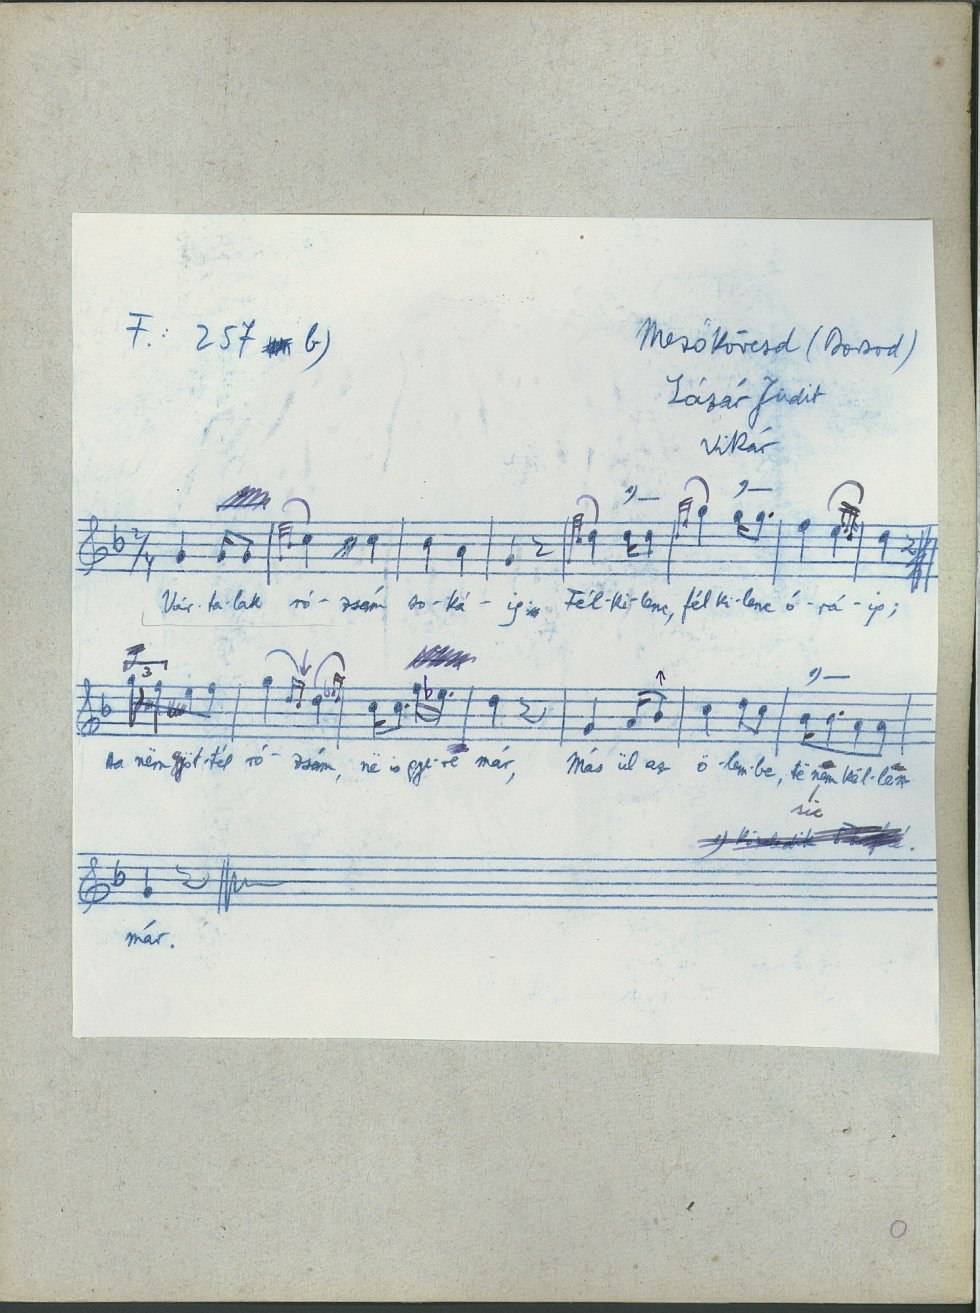 F.: 257 b)
Mezőkövesd (Borsod)
Lázár Judit
Vikár
2/4
Vár-ta-lak ró-zsám so-ká-ig; Fél-ki-lenc, fél ki-lenc ó-rá-ig;
3
Ha nëm gyöt-tél ró-zsám, në is gye-re már, Más ül az ö-lem-be, të nëm kël-lësz
sic
már.